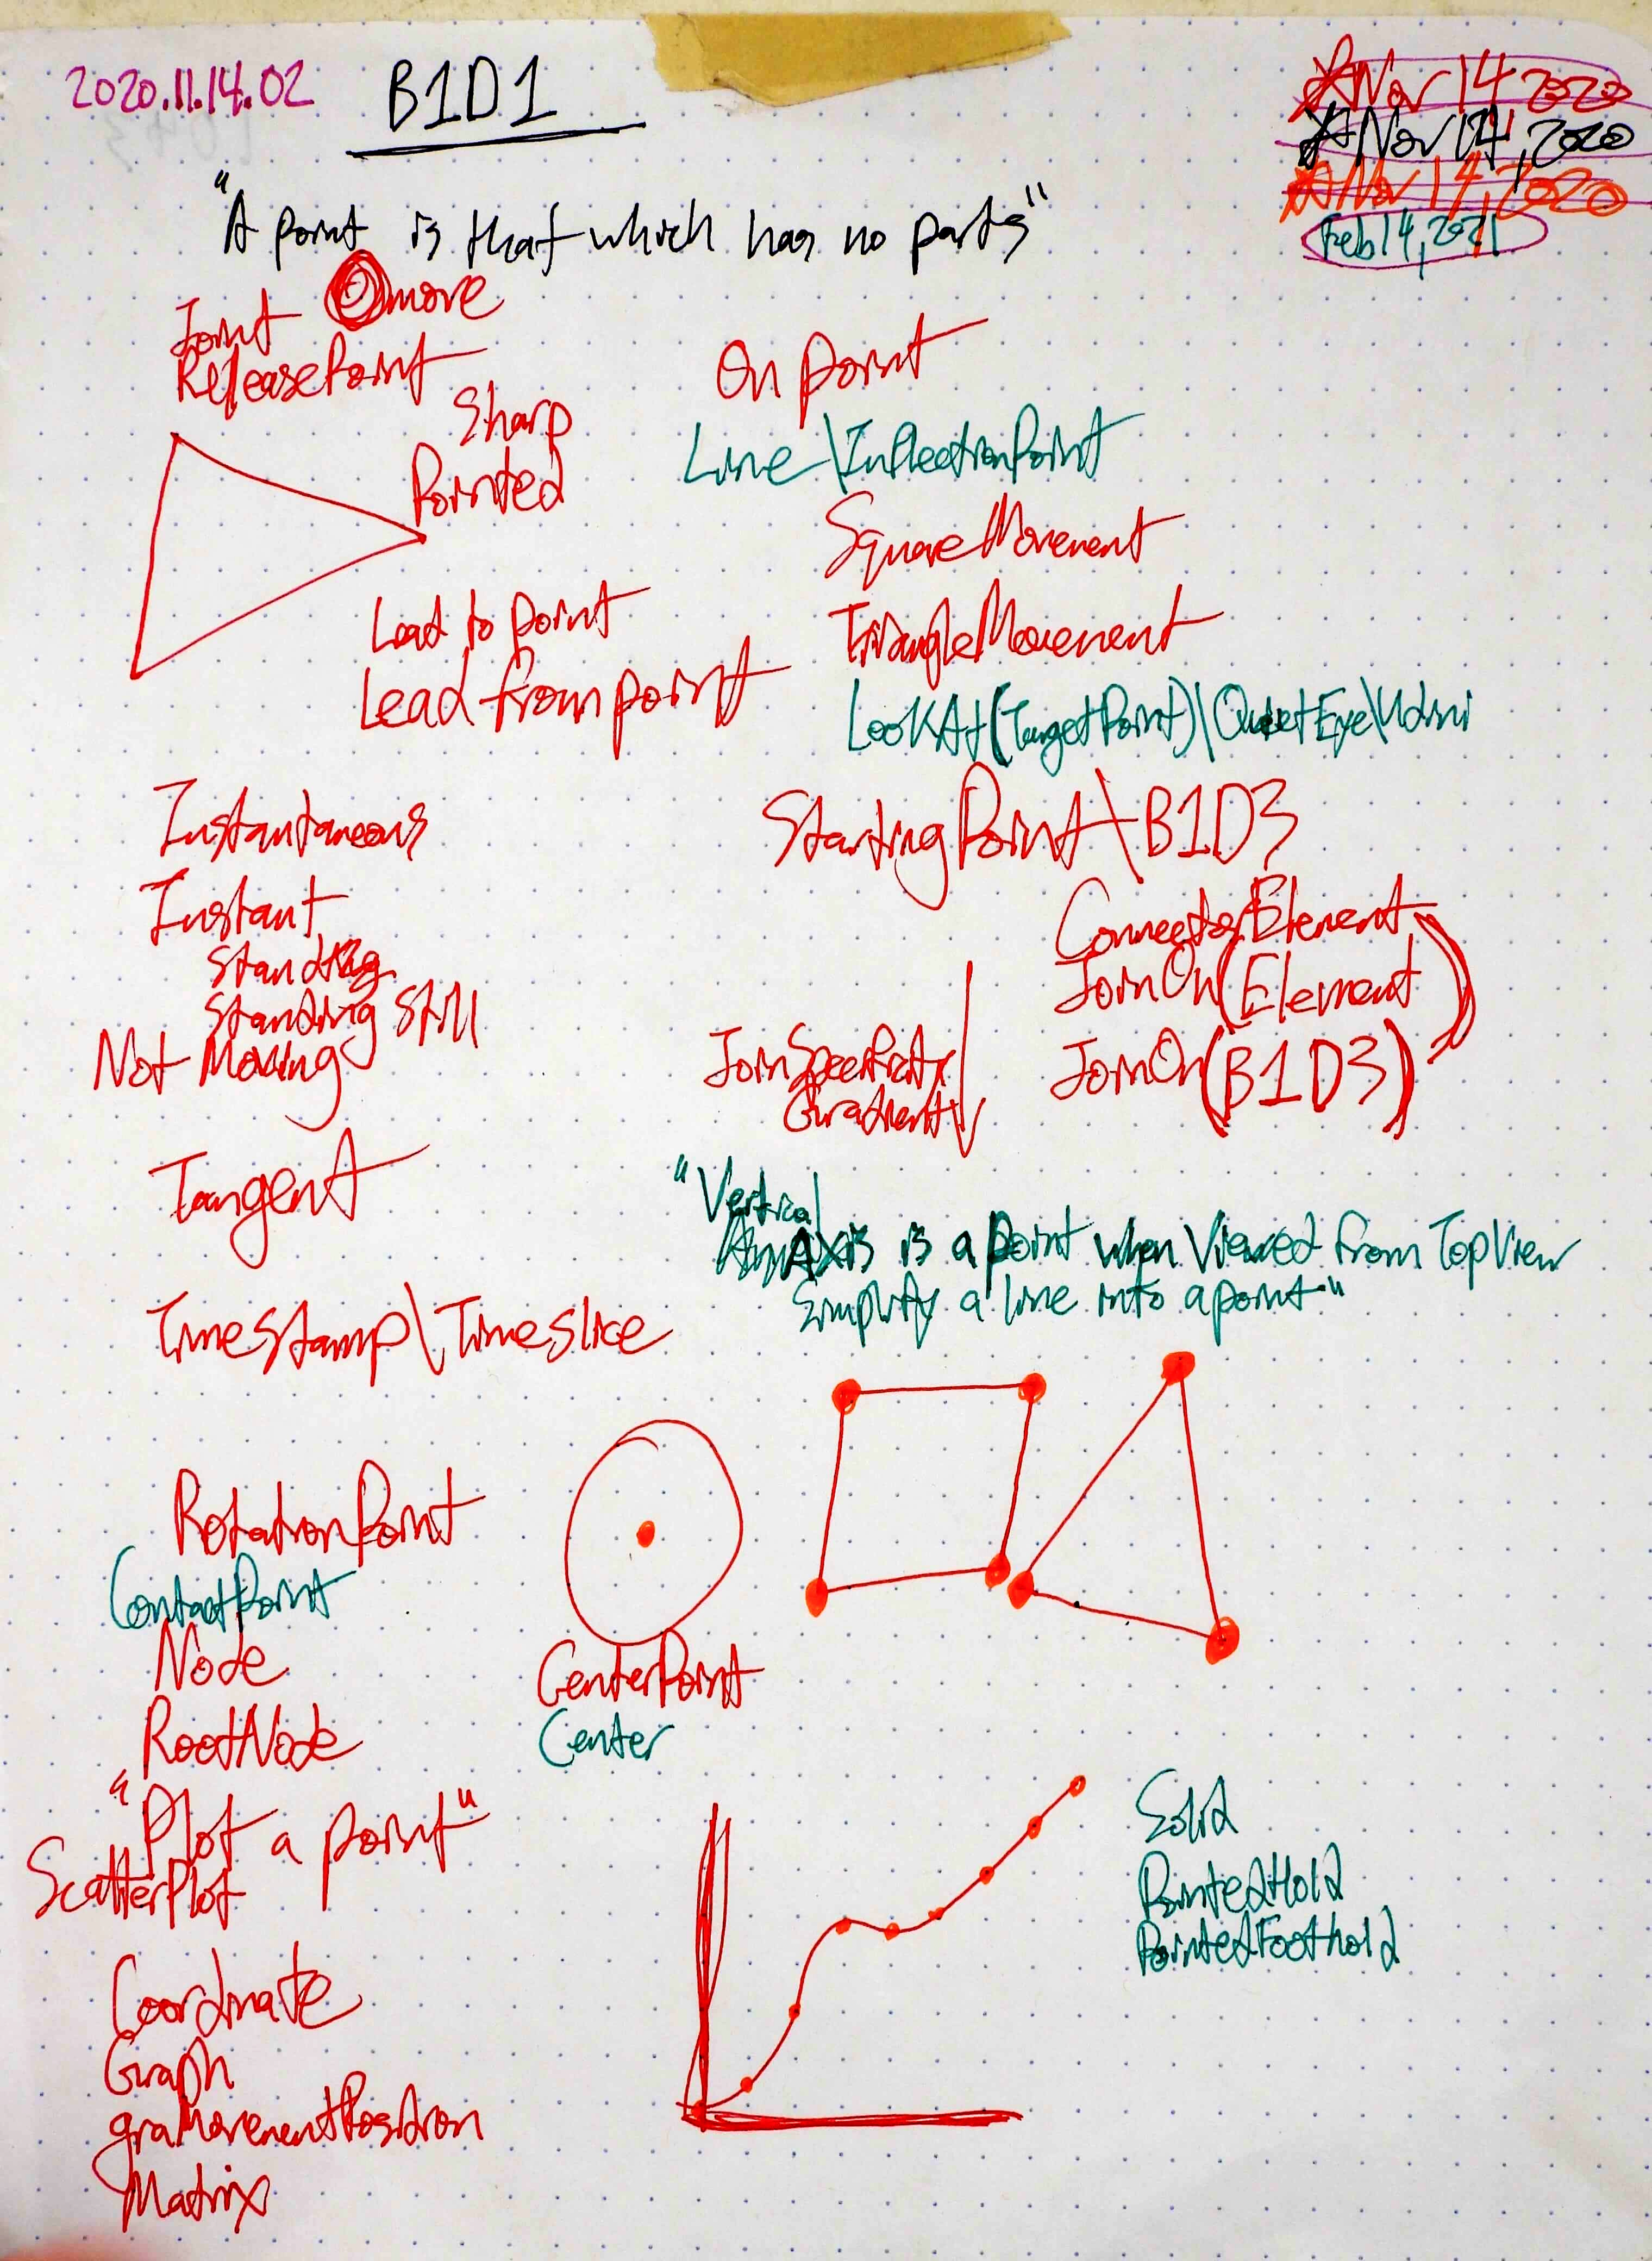 2020.11.14.02
B1D1
Nov 14 2020
Nov 14, 2020
Nov 14, 2020
Feb 14, 2021
"A point is that which has no parts"
more
Joint
ReleasePoint
Sharp
Pointed
Lead to point
Lead from point
On point
Line\InflectionPoint
SquareMovement
TriangleMovement
LookAt(TargetPoint)\QuietEye\Udmi
Instantaneous
Instant
Standing
Standing Still
Not Moving
StartingPoint\B1D3
ConnectorElement
JoinOn(Element
JoinOn(B1D3)
JoinSpecificity
Gradient
Tangent
"Vertical
Axis is a point when Viewed from TopView
Simplify a line into a point"
TimeStamp\Timeslice
RotationPoint
ContactPoint
Node
RootNode
CenterPoint
Center
"Plot a point"
ScatterPlot
Coordinate
Graph
graMovementPosition
Matrix
Solid
PointedHold
PointedFoothold